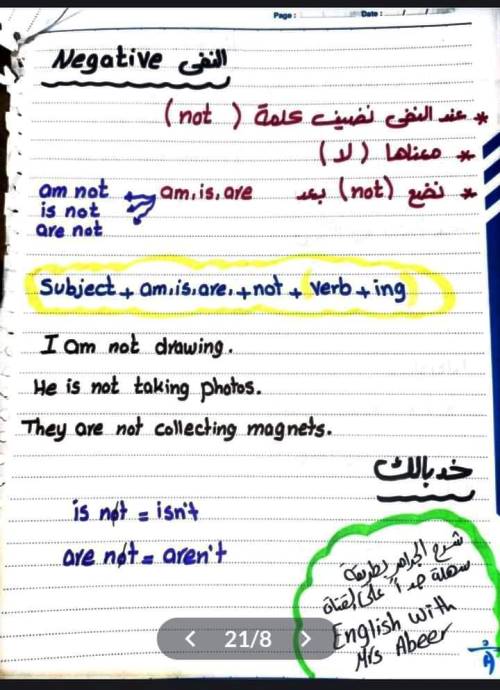 Page : Date : / /
Negative النفى
* عند النفى نضيف كلمة ( not )
* معناها ( لا )
* نضع (not) بعد am, is, are
am not
is not
are not
Subject + am, is, are, + not + verb + ing
I am not drawing.
He is not taking photos.
They are not collecting magnets.
خد بالك
is not = isn't
are not = aren't
شرح الجرامر بطريقة
سهلة جداً على القناة
English with
Mrs Abeer
21/8